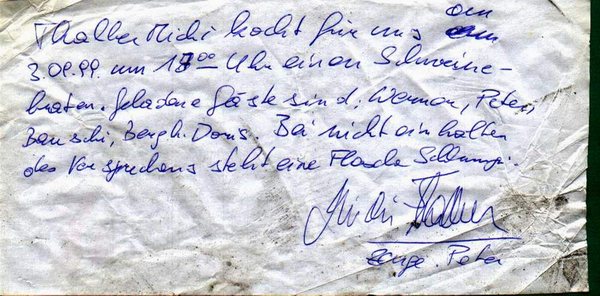 Thaller Michi kocht für uns am
3.09.99. um 18⁰⁰ Uhr einen Schweine-
braten. Geladene Gäste sind: Werner, Peter,
Bauschi, Bergh. Doris. Bei nicht einhalten
des Versprechens steht eine Flasche
Michi Thaller
Zeuge. Peter